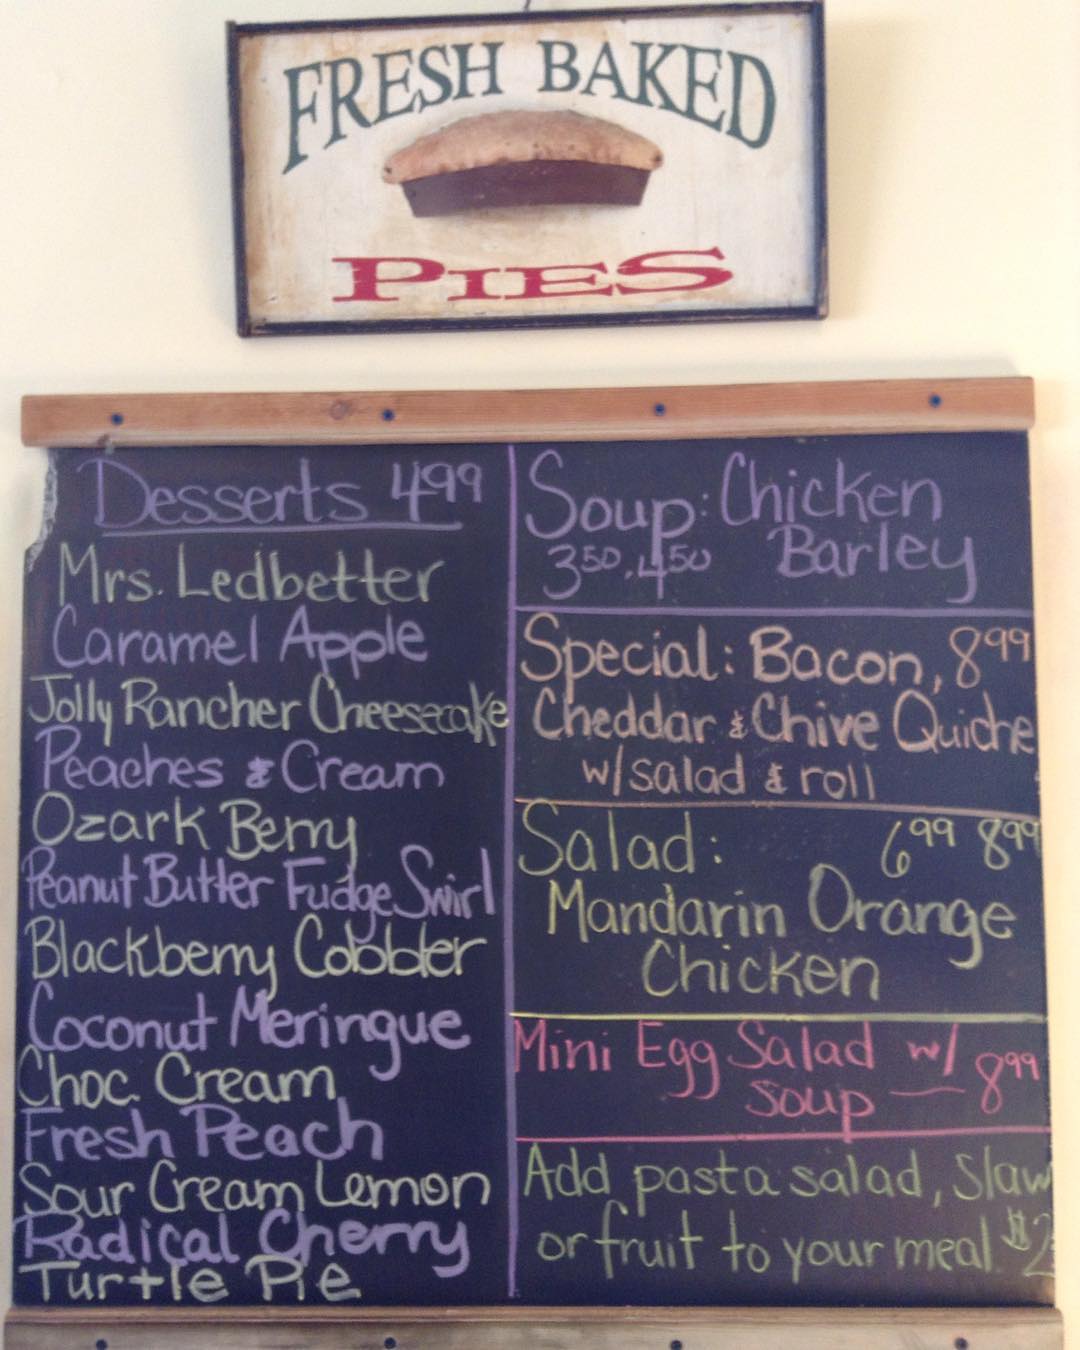 FRESH BAKED
PIES
Desserts 4.99
Mrs. Ledbetter
Caramel Apple
Jolly Rancher Cheesecake
Peaches & Cream
Ozark Berry
Peanut Butter Fudge Swirl
Blackberry Cobbler
Coconut Meringue
Choc. Cream
Fresh Peach
Sour Cream Lemon
Radical Cherry
Turtle Pie
Soup: Chicken
3.50, 4.50 Barley
Special: Bacon, 8.99
Cheddar & Chive Quiche
w/salad & roll
Salad: 6.99 8.99
Mandarin Orange
Chicken
Mini Egg Salad w/
soup — 8.99
Add pasta salad, slaw
or fruit to your meal. $2